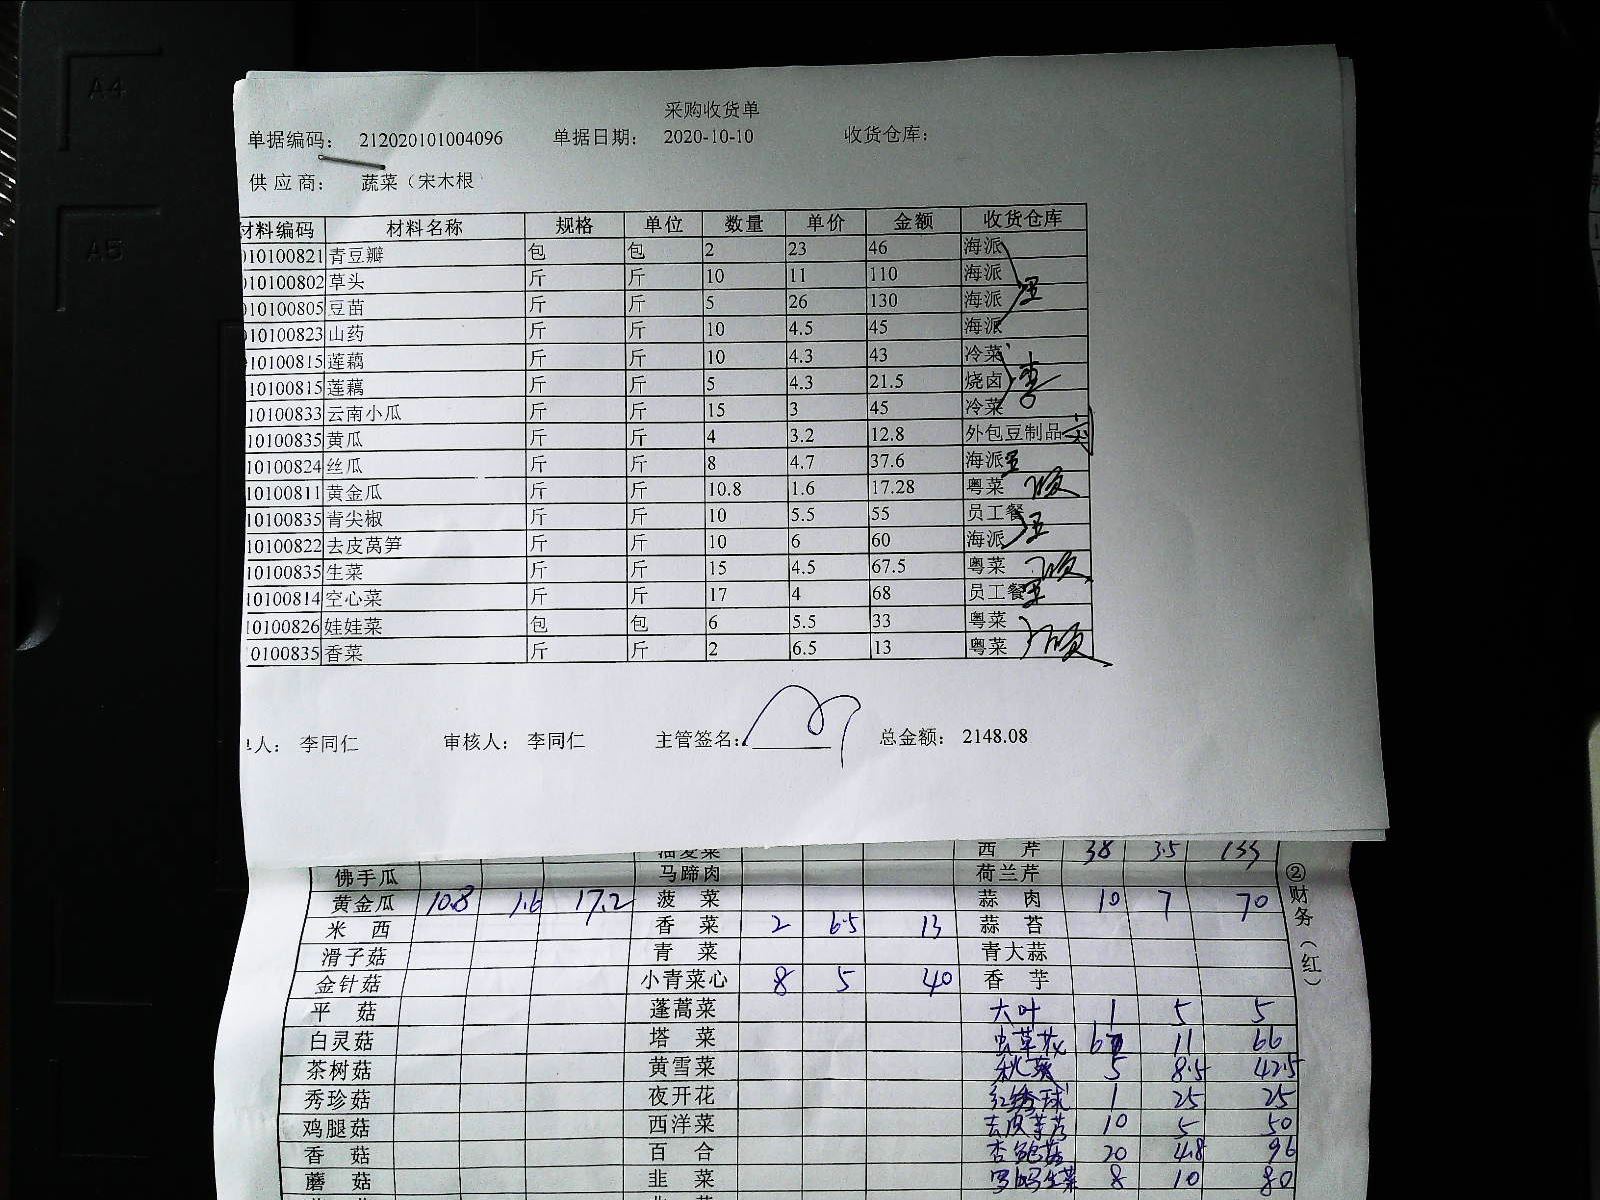 A4
A5
采购收货单
单据编码: 212020101004096 单据日期: 2020-10-10 收货仓库:
供应商: 蔬菜（宋木根
材料编码 材料名称 规格 单位 数量 单价 金额 收货仓库
10100821 青豆瓣 包 包 2 23 46 海派
10100802 草头 斤 斤 10 11 110 海派
10100805 豆苗 斤 斤 5 26 130 海派
10100823 山药 斤 斤 10 4.5 45 海派
10100815 莲藕 斤 斤 10 4.3 43 冷菜
10100815 莲藕 斤 斤 5 4.3 21.5 烧卤
10100833 云南小瓜 斤 斤 15 3 45 冷菜
10100835 黄瓜 斤 斤 4 3.2 12.8 外包豆制品
10100824 丝瓜 斤 斤 8 4.7 37.6 海派
10100811 黄金瓜 斤 斤 10.8 1.6 17.28 粤菜
10100835 青尖椒 斤 斤 10 5.5 55 员工餐
10100822 去皮莴笋 斤 斤 10 6 60 海派
10100835 生菜 斤 斤 15 4.5 67.5 粤菜
10100814 空心菜 斤 斤 17 4 68 员工餐
10100826 娃娃菜 包 包 6 5.5 33 粤菜
0100835 香菜 斤 斤 2 6.5 13 粤菜
人: 李同仁 审核人: 李同仁 主管签名: 总金额: 2148.08
油麦菜 西芹 38 3.5 133
佛手瓜 马蹄肉 荷兰芹
黄金瓜 10.8 1.6 17.2 菠菜 蒜肉 10 7 70
米西 香菜 2 6.5 13 蒜苔
滑子菇 青菜 青大蒜
金针菇 小青菜心 8 5 40 香芋
平菇 蓬蒿菜 大叶 1 5 5
白灵菇 塔菜 虫草花 6 11 66
茶树菇 黄雪菜 秋葵 5 8.5 42.5
秀珍菇 夜开花 红绣球 1 25 25
鸡腿菇 西洋菜 去皮芋艿 10 5 50
香菇 百合 杏鲍菇 20 4.8 96
蘑菇 韭菜 罗马生菜 8 10 80
②财务（红）